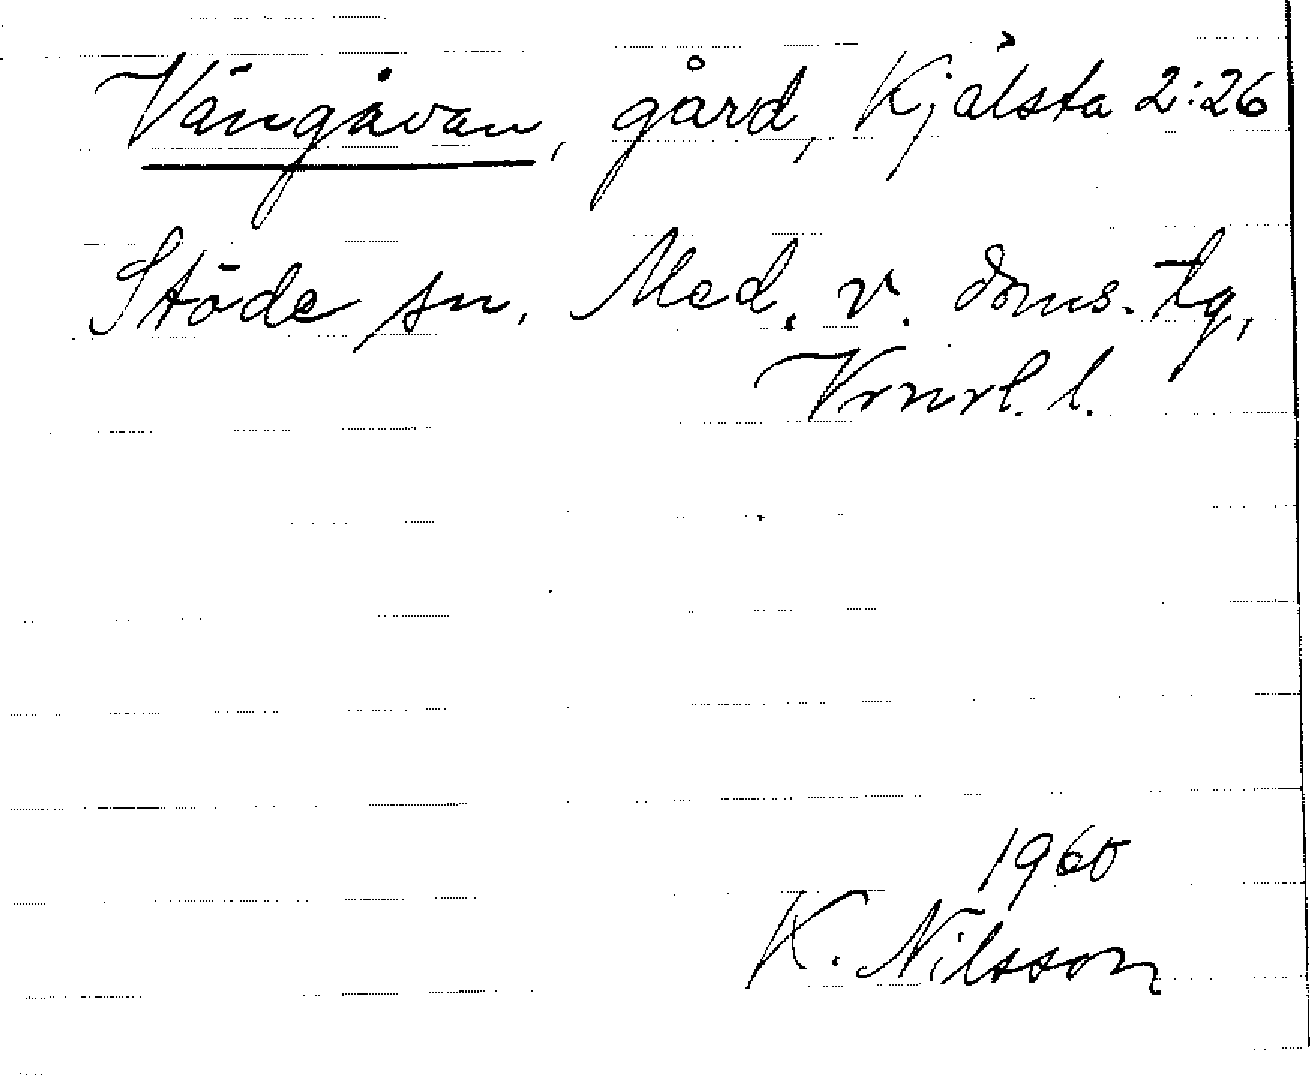 Vängåvan, gård, Kjälsta 2:26
Stöde sn, Med. v. doms. tg,
Vrnrl. l.
1960
K. Nilsson